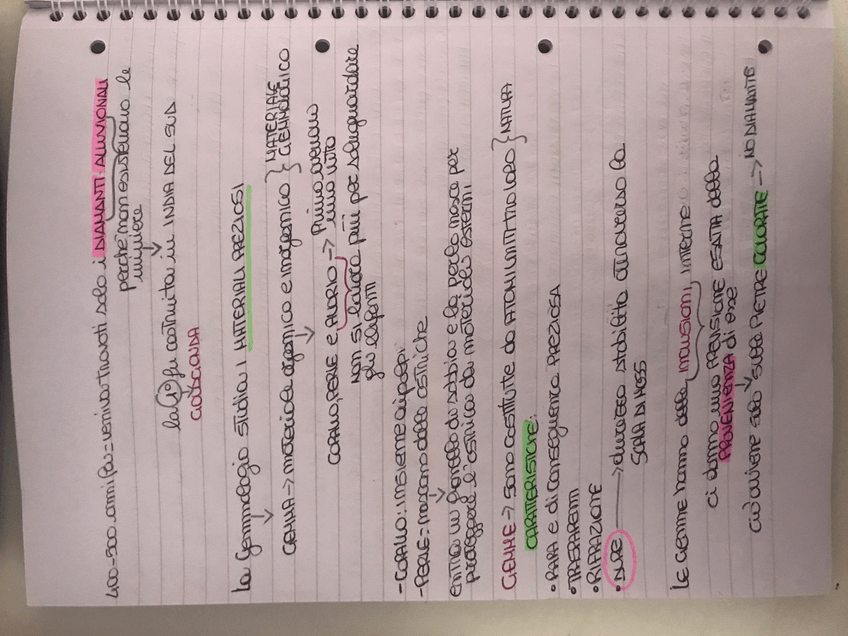 400-500 anni fa = veniva trovati solo i DIAMANTI ALLUVIONALI
perché non esistevano le
miniere
la 1° fu costruita in INDIA DEL SUD
GOLCONDA
La Gemmologia studia i MATERIALI PREZIOSI
GEMMA → materiale organico e inorganico } MATERIALE GEMMOLOGICO
CORALLO, PERLE E AVORIO → Prima avevano
una vita
non si lavora più per salvaguardare
gli elefanti
- CORALLO: insieme di polipi
- PERLE = nascono dalle ostriche
entra un granello di sabbia e la perla nasce per
proteggere l'ostrica da materiale esterni
GEMME → sono costituite da ATOMI UNITI TRA LORO } NATURA
CARATTERISTICHE:
• RARA e di conseguenza PREZIOSA
• TRASPARENTI
• RIFRAZIONE
• DURE → durezza stabilita attraverso la
SCALA DI MOSS
Le Gemme hanno delle inclusioni interne
ci danno una PREVISIONE ESATTA della
PROVENIENZA di esse
ciò avviene solo sulle PIETRE COLORATE → NO DIAMANTE